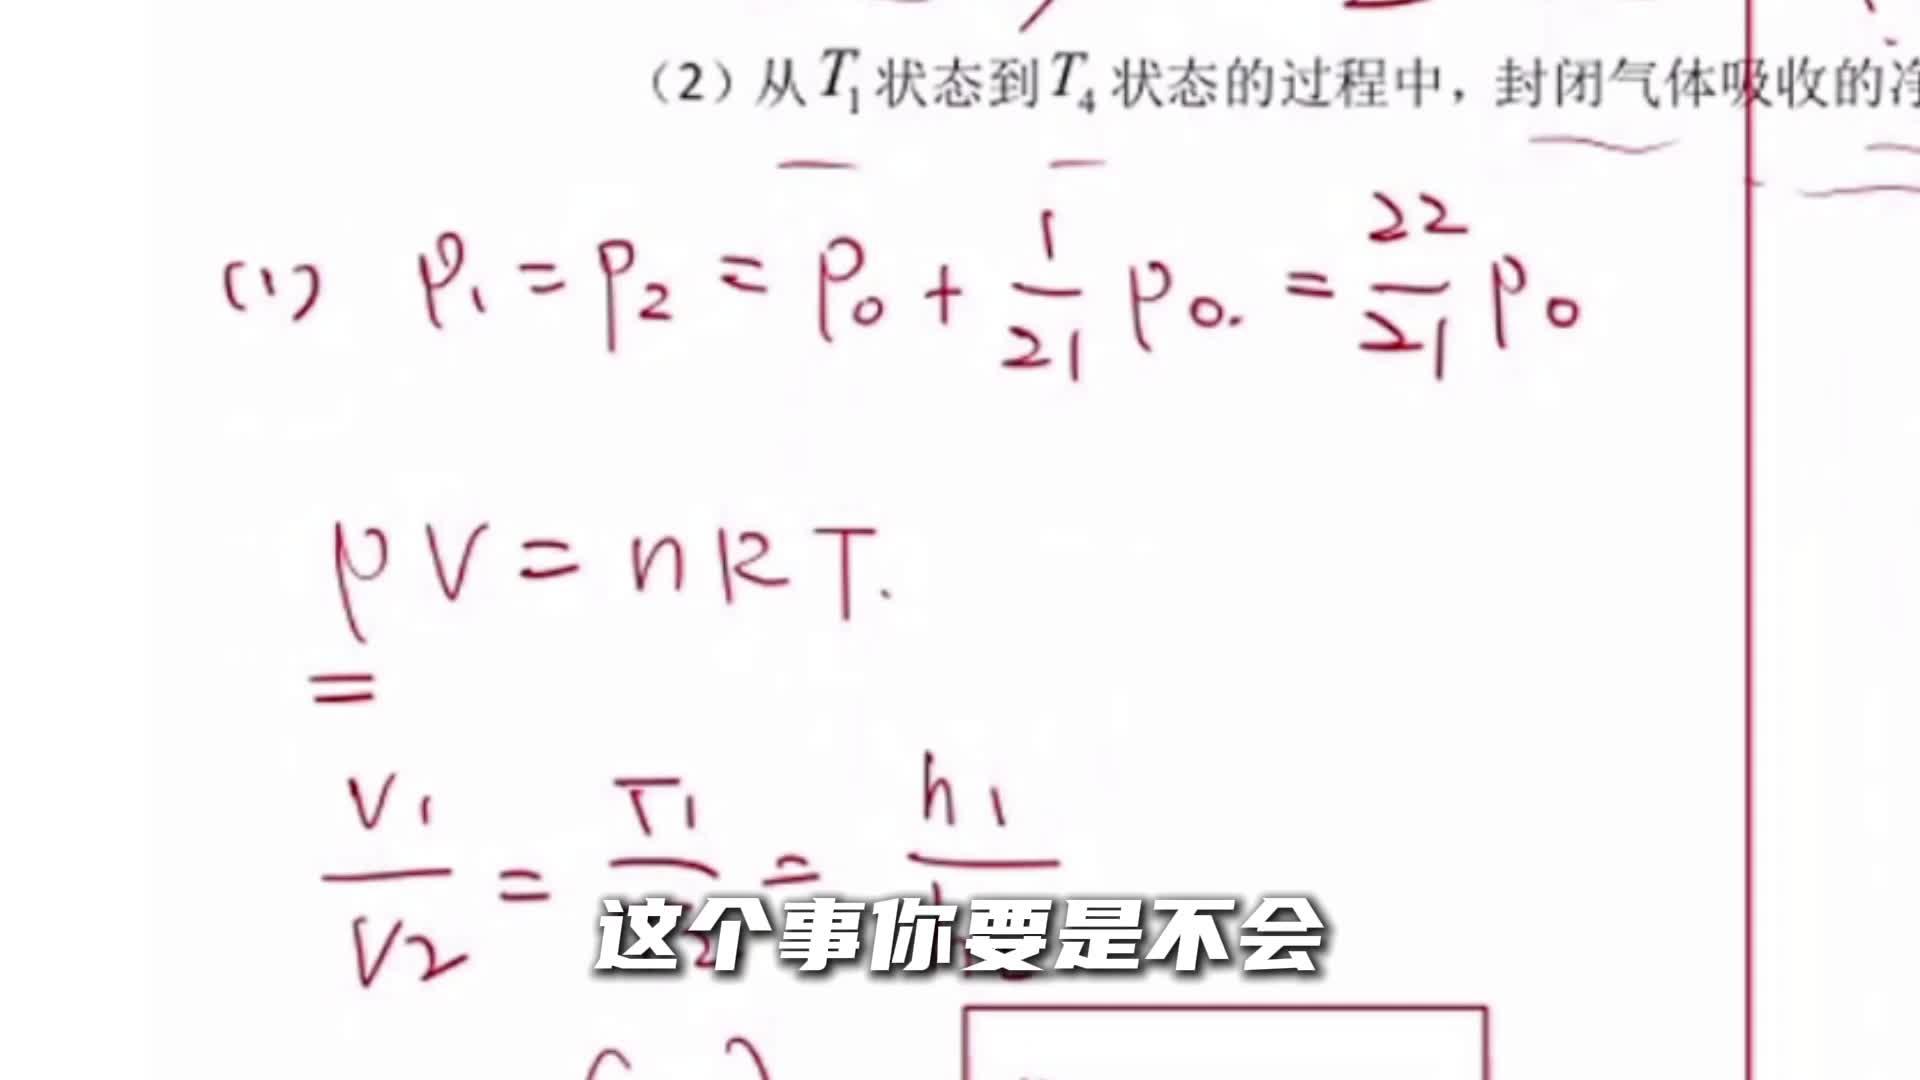 （2）从T₁状态到T₄状态的过程中，封闭气体吸收的净
(1) P₁ = P₂ = P₀ + 1/21 P₀. = 22/21 P₀
PV = nRT.
=
V₁/V₂ = T₁/T₂ = h₁/h₂
这个事你要是不会